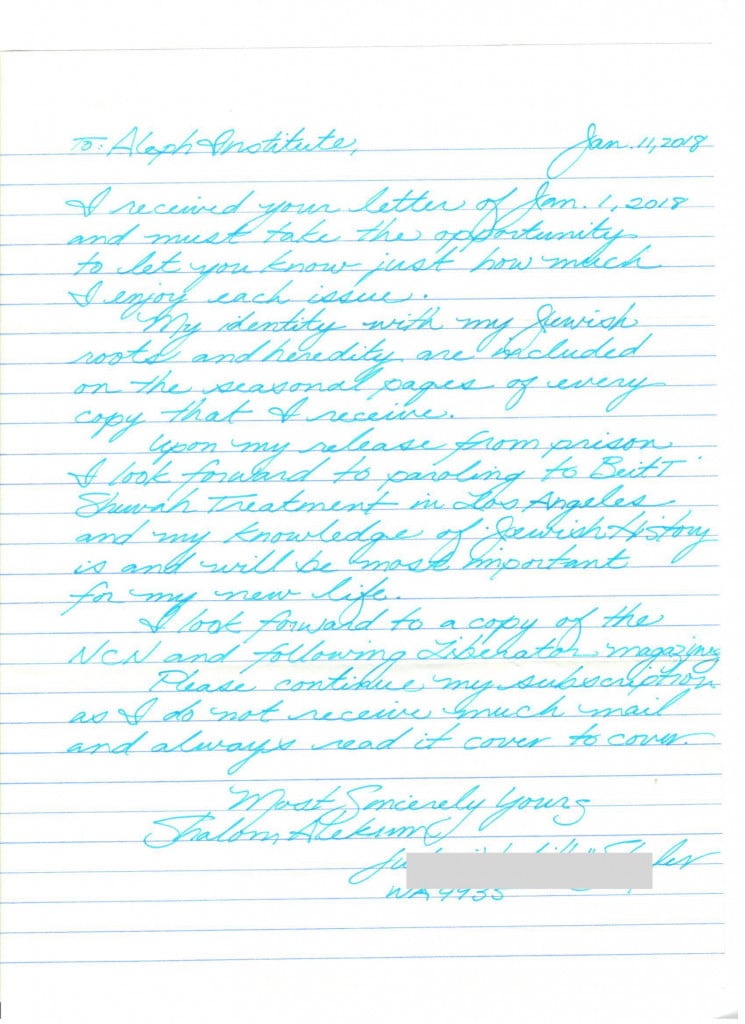 To: Aleph Institute, Jan. 11, 2018
I received your letter of Jan. 1, 2018
and must take the opportunity
to let you know just how much
I enjoy each issue.
My identity with my Jewish
roots and heredity are included
on the seasonal pages of every
copy that I receive.
Upon my release from prison
I look forward to paroling to Beit T'
Shuvah Treatment in Los Angeles
and my knowledge of Jewish History
is and will be most important
for my new life.
I look forward to a copy of the
NCN and following Liberator magazines
Please continue my subscription
as I do not receive much mail
and always read it cover to cover.
Most Sincerely Yours
Shalom, Alekum
WA4935